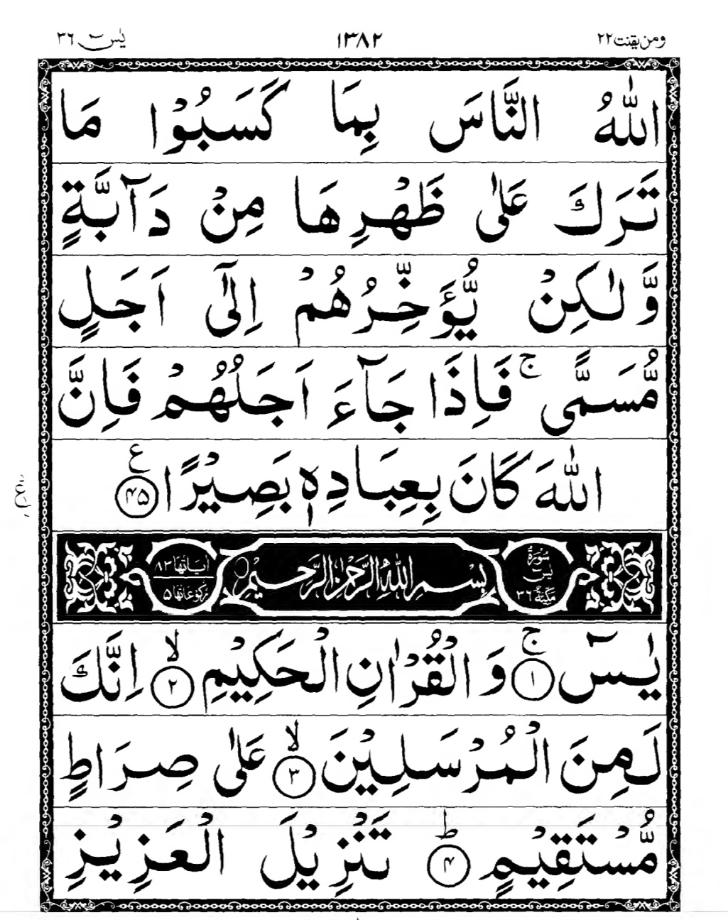 ومن يقنت ٢٢ ١٣٨٢ يٰسٓ ٣٦
اللّٰهُ النَّاسَ بِمَا كَسَبُوْا مَا
تَرَكَ عَلٰى ظَهْرِهَا مِنْ دَآبَّةٍ
وَّلٰكِنْ يُّؤَخِّرُهُمْ اِلٰٓى اَجَلٍ
مُّسَمًّى ۚ فَاِذَا جَآءَ اَجَلُهُمْ فَاِنَّ
اللّٰهَ كَانَ بِعِبَادِهٖ بَصِيْرًا ع ﴿٤٥﴾
سُوْرَةُ يٰسٓ مَكِّيَّةٌ ٣٦ بِسْمِ اللّٰهِ الرَّحْمٰنِ الرَّحِيْمِ اٰيَاتُهَا ٨٣ رُكُوْعَاتُهَا ٥
يٰسٓ ۚ ﴿١﴾ وَالْقُرْاٰنِ الْحَكِيْمِ ۙ ﴿٢﴾ اِنَّكَ
لَمِنَ الْمُرْسَلِيْنَ ۙ ﴿٣﴾ عَلٰى صِرَاطٍ
مُّسْتَقِيْمٍ ؕ ﴿٤﴾ تَنْزِيْلَ الْعَزِيْزِ